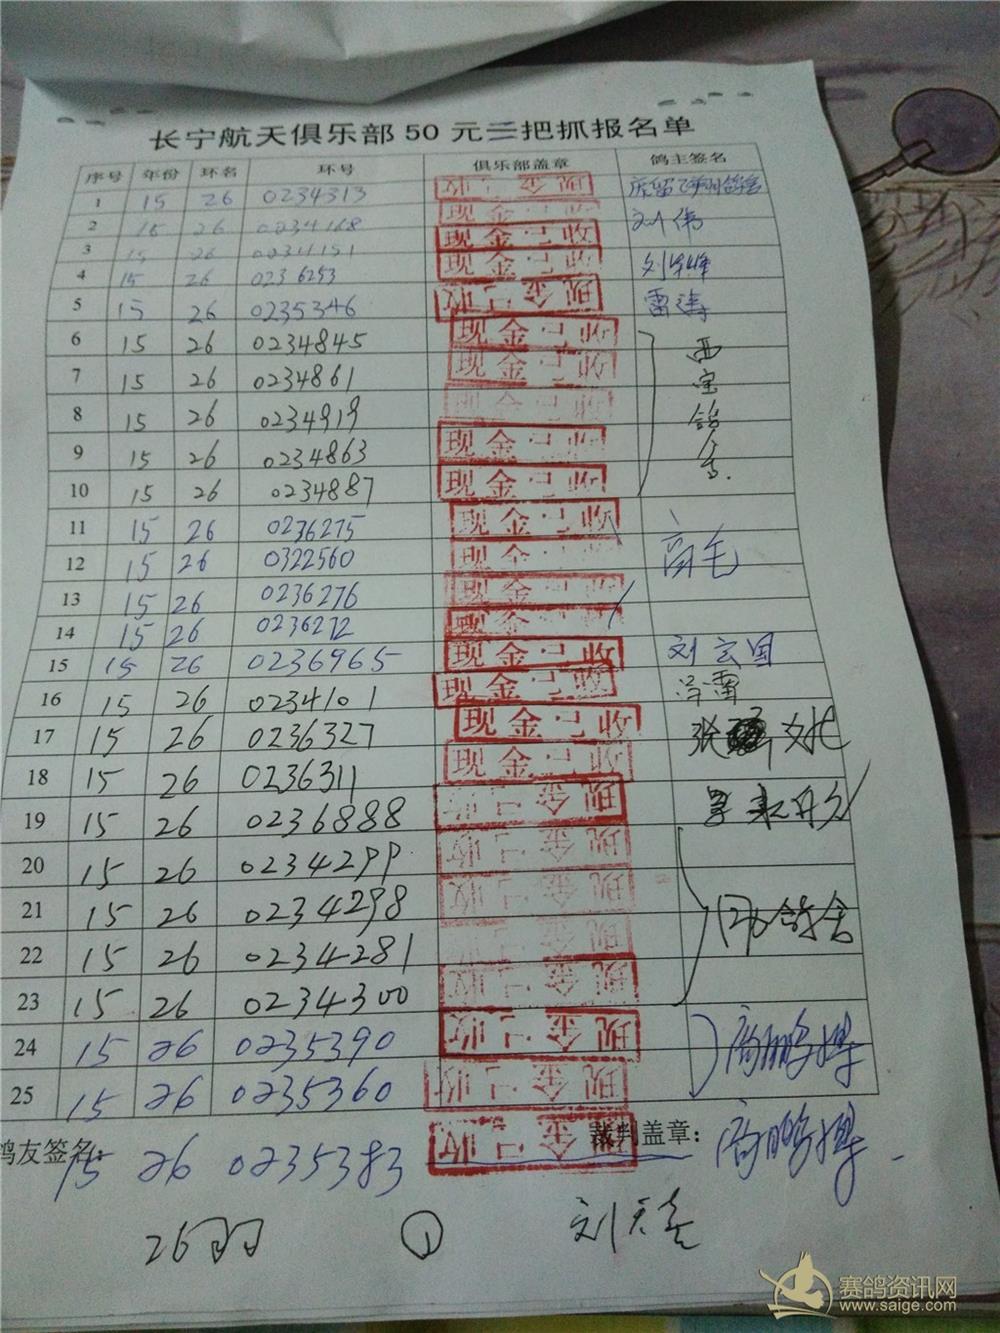 长宁航天俱乐部50元三把抓报名单
序号 年份 环名 环号 俱乐部盖章 鸽主签名
1 15 26 0234313 现金已收
2 15 26 0234168 现金已收 刘伟
3 15 26 0234151 现金已收
4 15 26 0236293 现金已收 刘华峰
5 15 26 0235346 现金已收 雷涛
6 15 26 0234845 现金已收
7 15 26 0234861 现金已收
8 15 26 0234919 现金已收
9 15 26 0234863 现金已收
10 15 26 0234887 现金已收
11 15 26 0236275 现金已收
12 15 26 0322560 现金已收 高毛
13 15 26 0236276 现金已收
14 15 26 0236272 现金已收
15 15 26 0236965 现金已收 刘玄国
16 15 26 0234101 现金已收
17 15 26 0236327 现金已收 张
18 15 26 0236311 现金已收
19 15 26 0236888 现金已收
20 15 26 0234299 现金已收
21 15 26 0234298 现金已收 鸽舍
22 15 26 0234281 现金已收
23 15 26 0234300 现金已收
24 15 26 0235390 现金已收 高鹏
25 15 26 0235360 现金已收
鸽友签名: 裁判盖章:
15 26 0235383 现金已收 高鹏
26羽 ① 刘天
赛鸽资讯网
www.saige.com